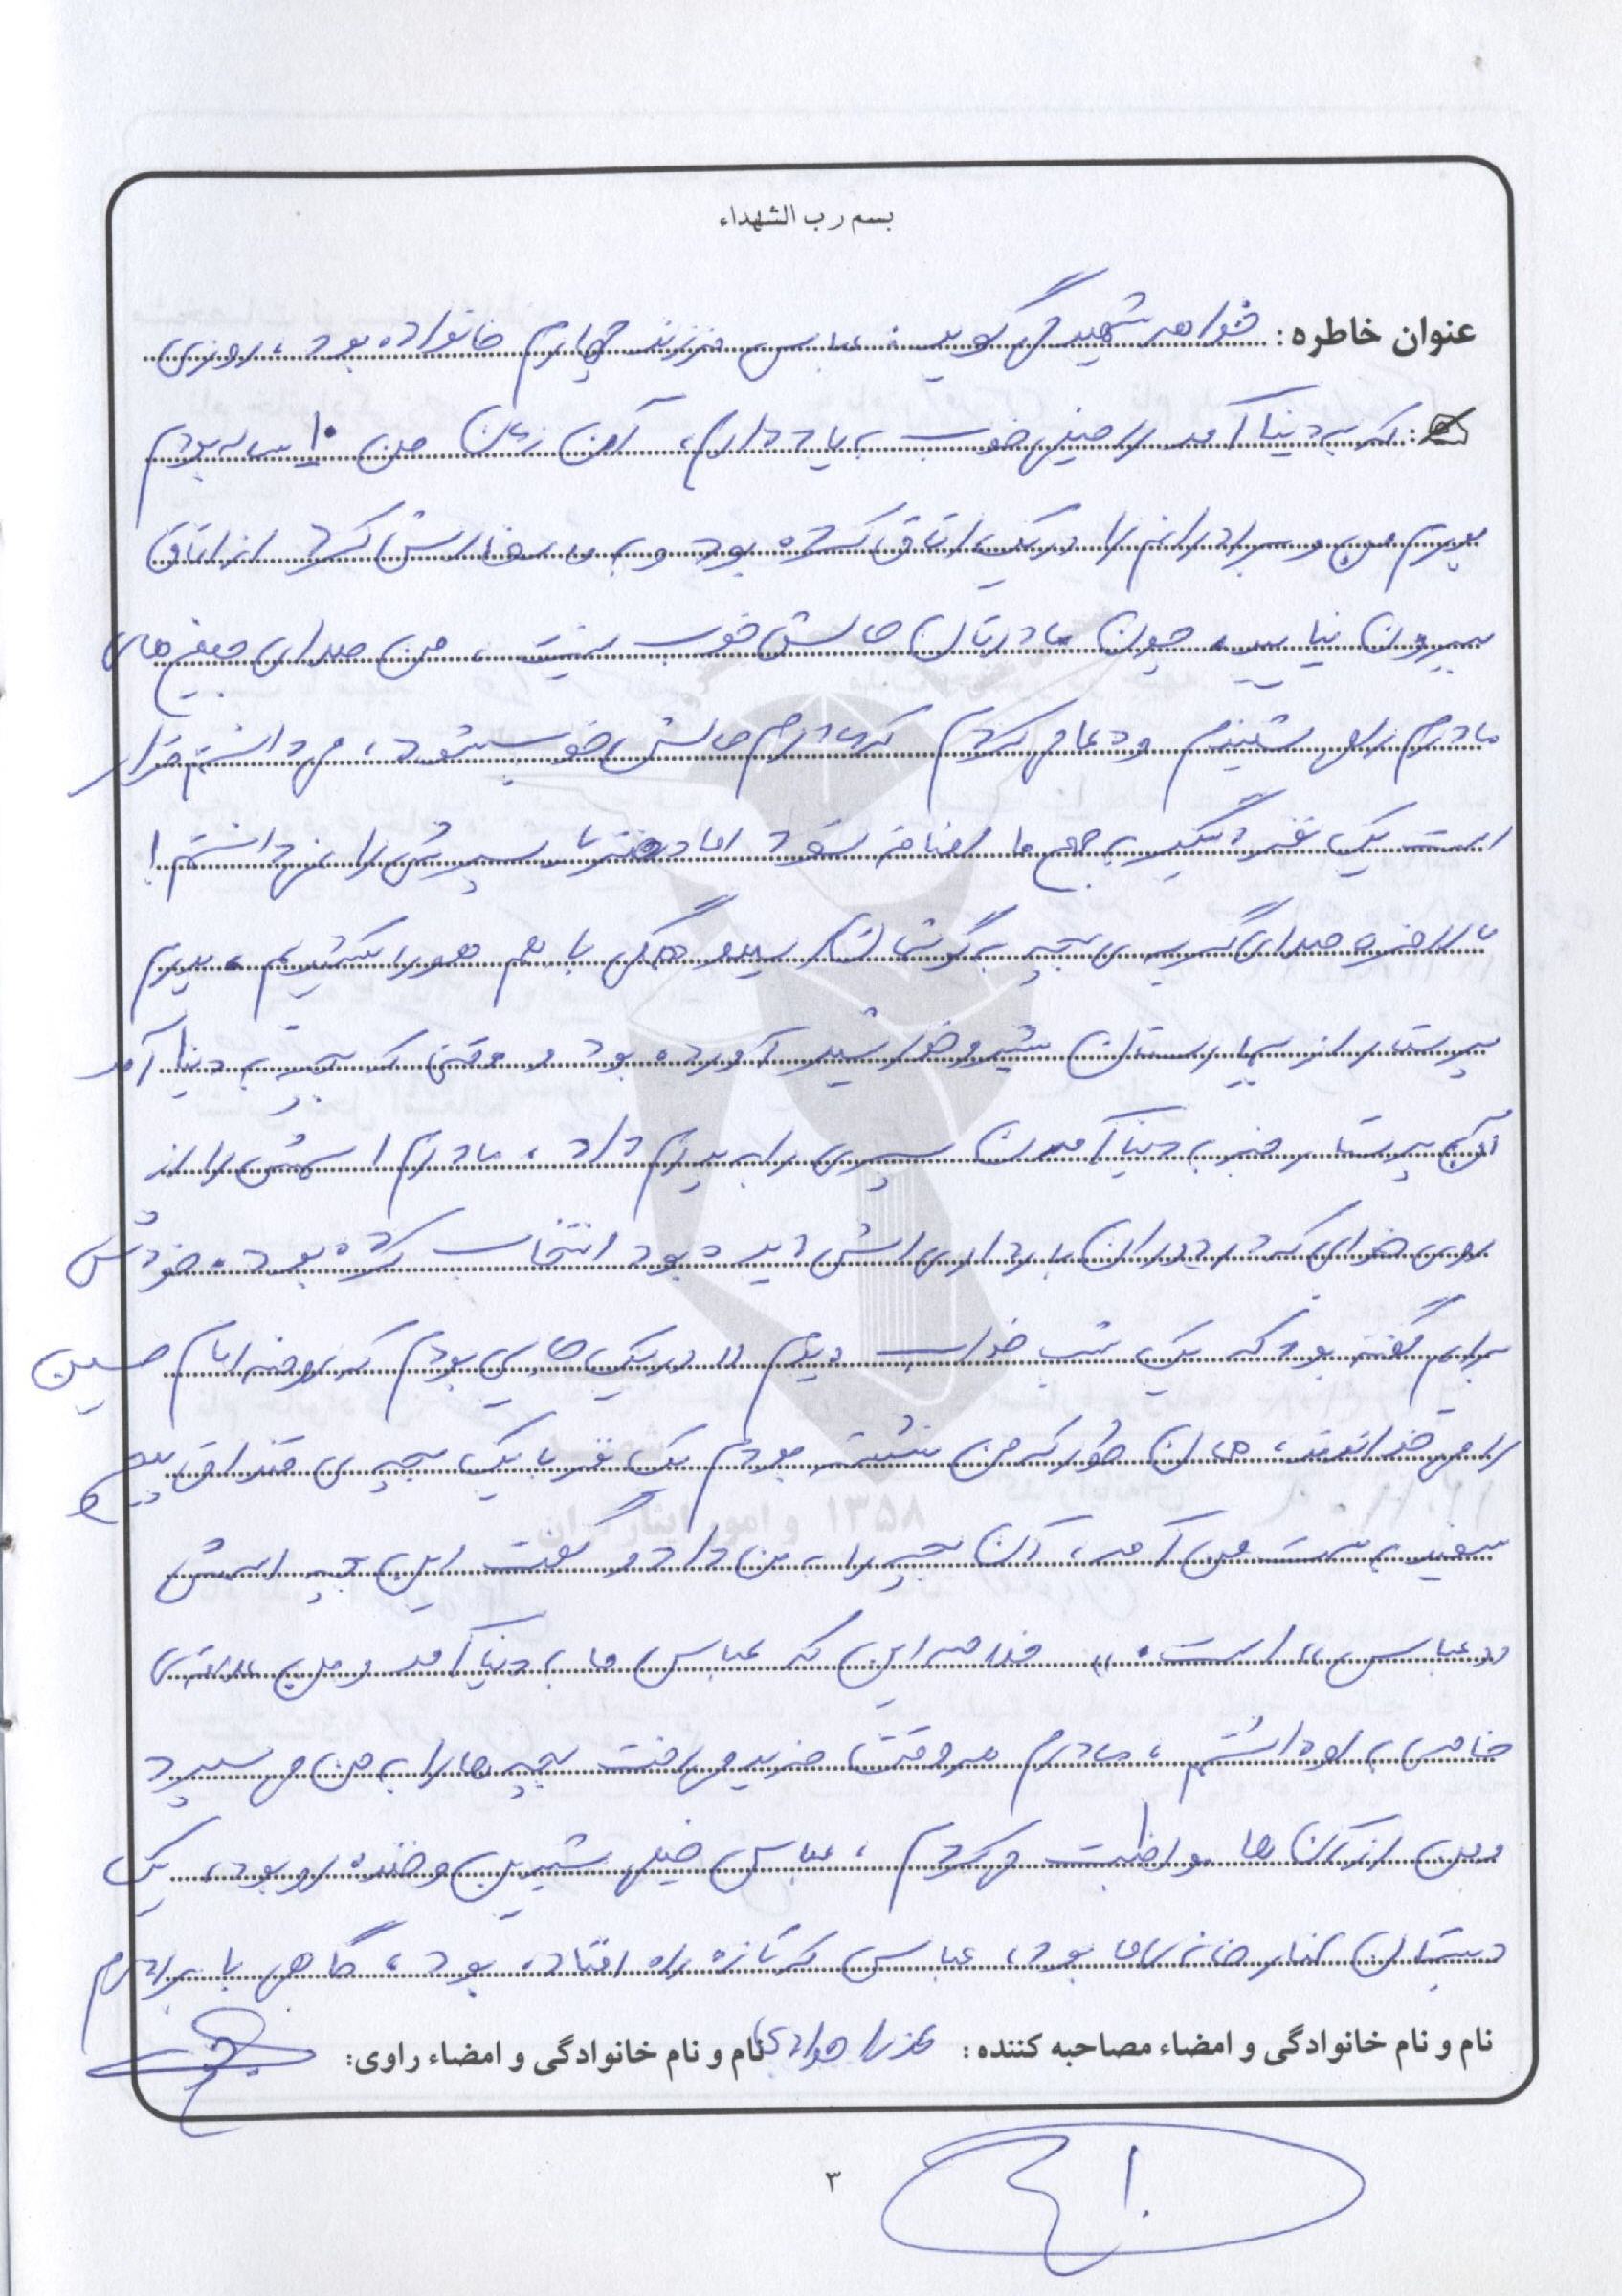 بسم رب الشهداء
عنوان خاطره: خواهر شهید می گوید: عباس فرزند چهارم خانواده بود، روزی
که به دنیا آمد را خیلی خوب به یاد دارم، آن زمان من ۱۰ ساله بودم
پدرم من و برادرانم را در یک اتاق کرده بود و به ما سفارش کرد از اتاق
بیرون نیایید، چون مادرتان حالش خوب نیست، من صدای جیغ های
مادرم را می شنیدم و دعا می کردم که مادرم حالش خوب بشود، می دانستم قرار
است یک نفر دیگر به جمع ما اضافه شود اما دختر یا پسرش را نمی دانستم!
بالاخره صدای گریه ی بچه به گوشمان رسید و همگی با هم هورا کشیدیم، پدرم
پرستار از بیمارستان شیر و خورشید آورده بود و وقتی که بچه به دنیا آمد
آن پرستار خبر به دنیا آمدن پسری را به پدرم داد، مادرم اسمش را از
روی خوابی که در دوران بارداری اش دیده بود انتخاب کرده بود. خودش
برایم گفته بود که یک شب خواب دیدم «در یک جایی بودم که روضه امام حسین
را می خواندند، همان طور که من نشسته بودم یک نفر با یک بچه ی قنداق پیچ
سفید به سمت من آمد، آن بچه را به من داد و گفت این بچه اسمش
«عباس» است.» خلاصه این که عباس ما به دنیا آمد و من علاقه ی
خاصی به او داشتم، مادرم هر وقت خرید می رفت بچه ها را به من می سپرد
و من از آن ها مواظبت می کردم، عباس خیلی شیرین و خنده رو بود، یک
دبستان کنار خانه ی ما بود، عباس که تازه راه افتاده بود، گاهی با برادرم
نام و نام خانوادگی و امضاء مصاحبه کننده: نام و نام خانوادگی و امضاء راوی:
۳